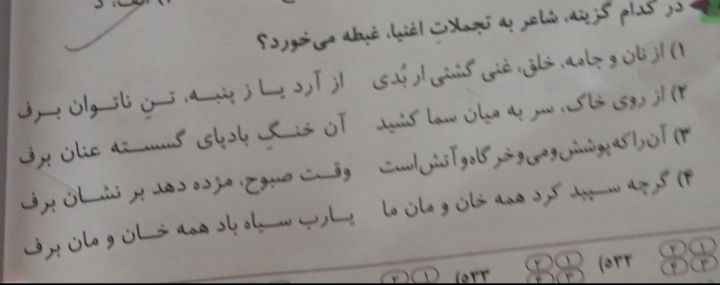 در کدام گزینه، شاعر به تجملاتِ اغنیا، غبطه می‌خورد؟
۱) از نان و جامه، خلق، غنی گشتی ار بُدی از آرد یا ز پنبه، تنِ ناتوان برف
۲) از روی خاک، سر به میان سما کشید آن خنگِ بادپای گسسته عنان برف
۳) آن را که پوشش و می و خرگاه و آتش است وقت صبوح، مژده دهد بر نشان برف
۴) گرچه سپید کرد همه خان و مان ما یارب سیاه باد همه خان و مان برف
۱ ۲ ۳ ۴ ۵۳۲) ۱ ۲ ۳ ۴ ۵۳۳) ۱ ۲